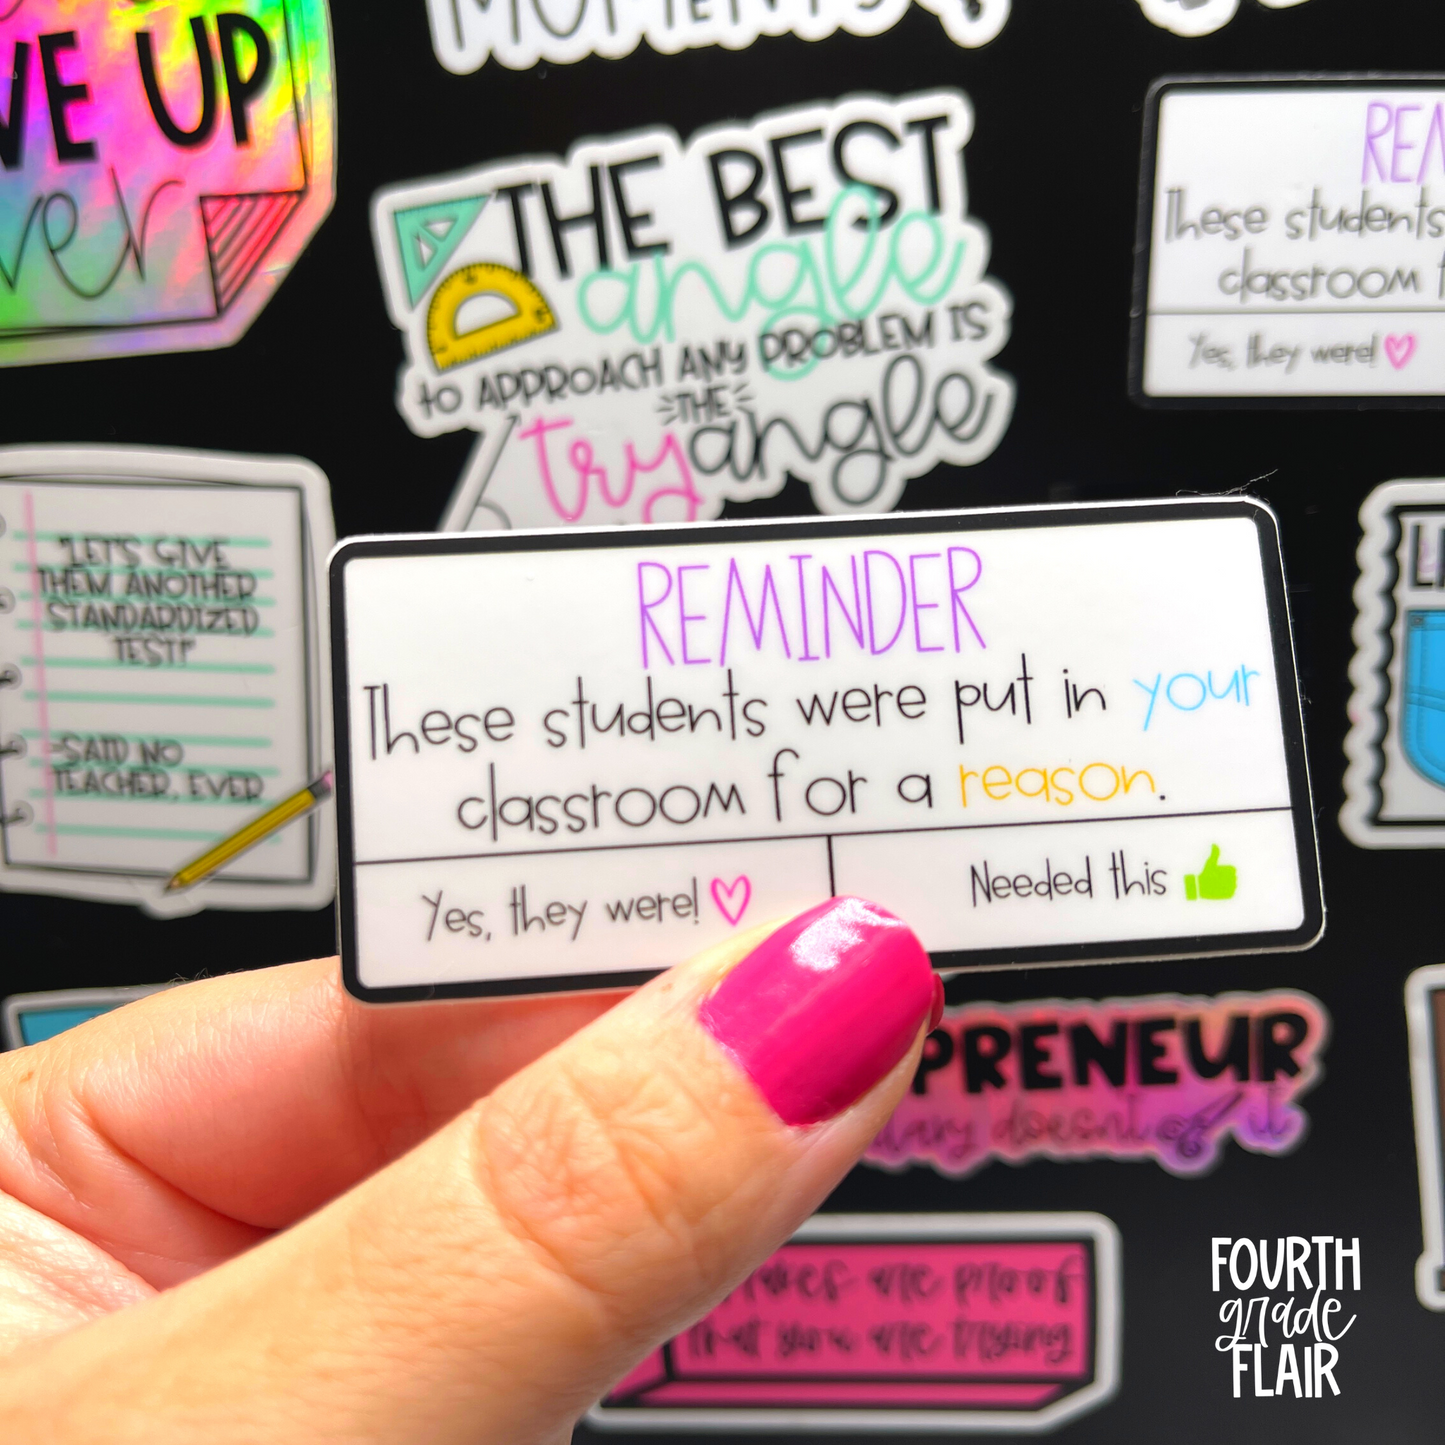 UP
MOMENTS
THE BEST
angle
to APPROACH ANY PROBLEM IS
THE
tryangle
REM
These students
classroom
Yes, they were!
"LET'S GIVE
THEM ANOTHER
STANDARDIZED
TEST!"
-SAID NO
TEACHER, EVER
REMINDER
These students were put in your
classroom for a reason.
Yes, they were!
Needed this
PRENEUR
doesn't it
are proof
that you are trying
FOURTH
grade
FLAIR